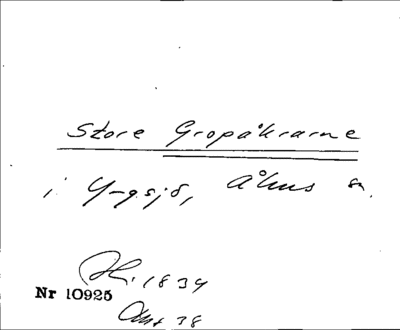 Store Gropåkrarne
i Yngsjö, Åhus sn.
1834
Nr 10925
38